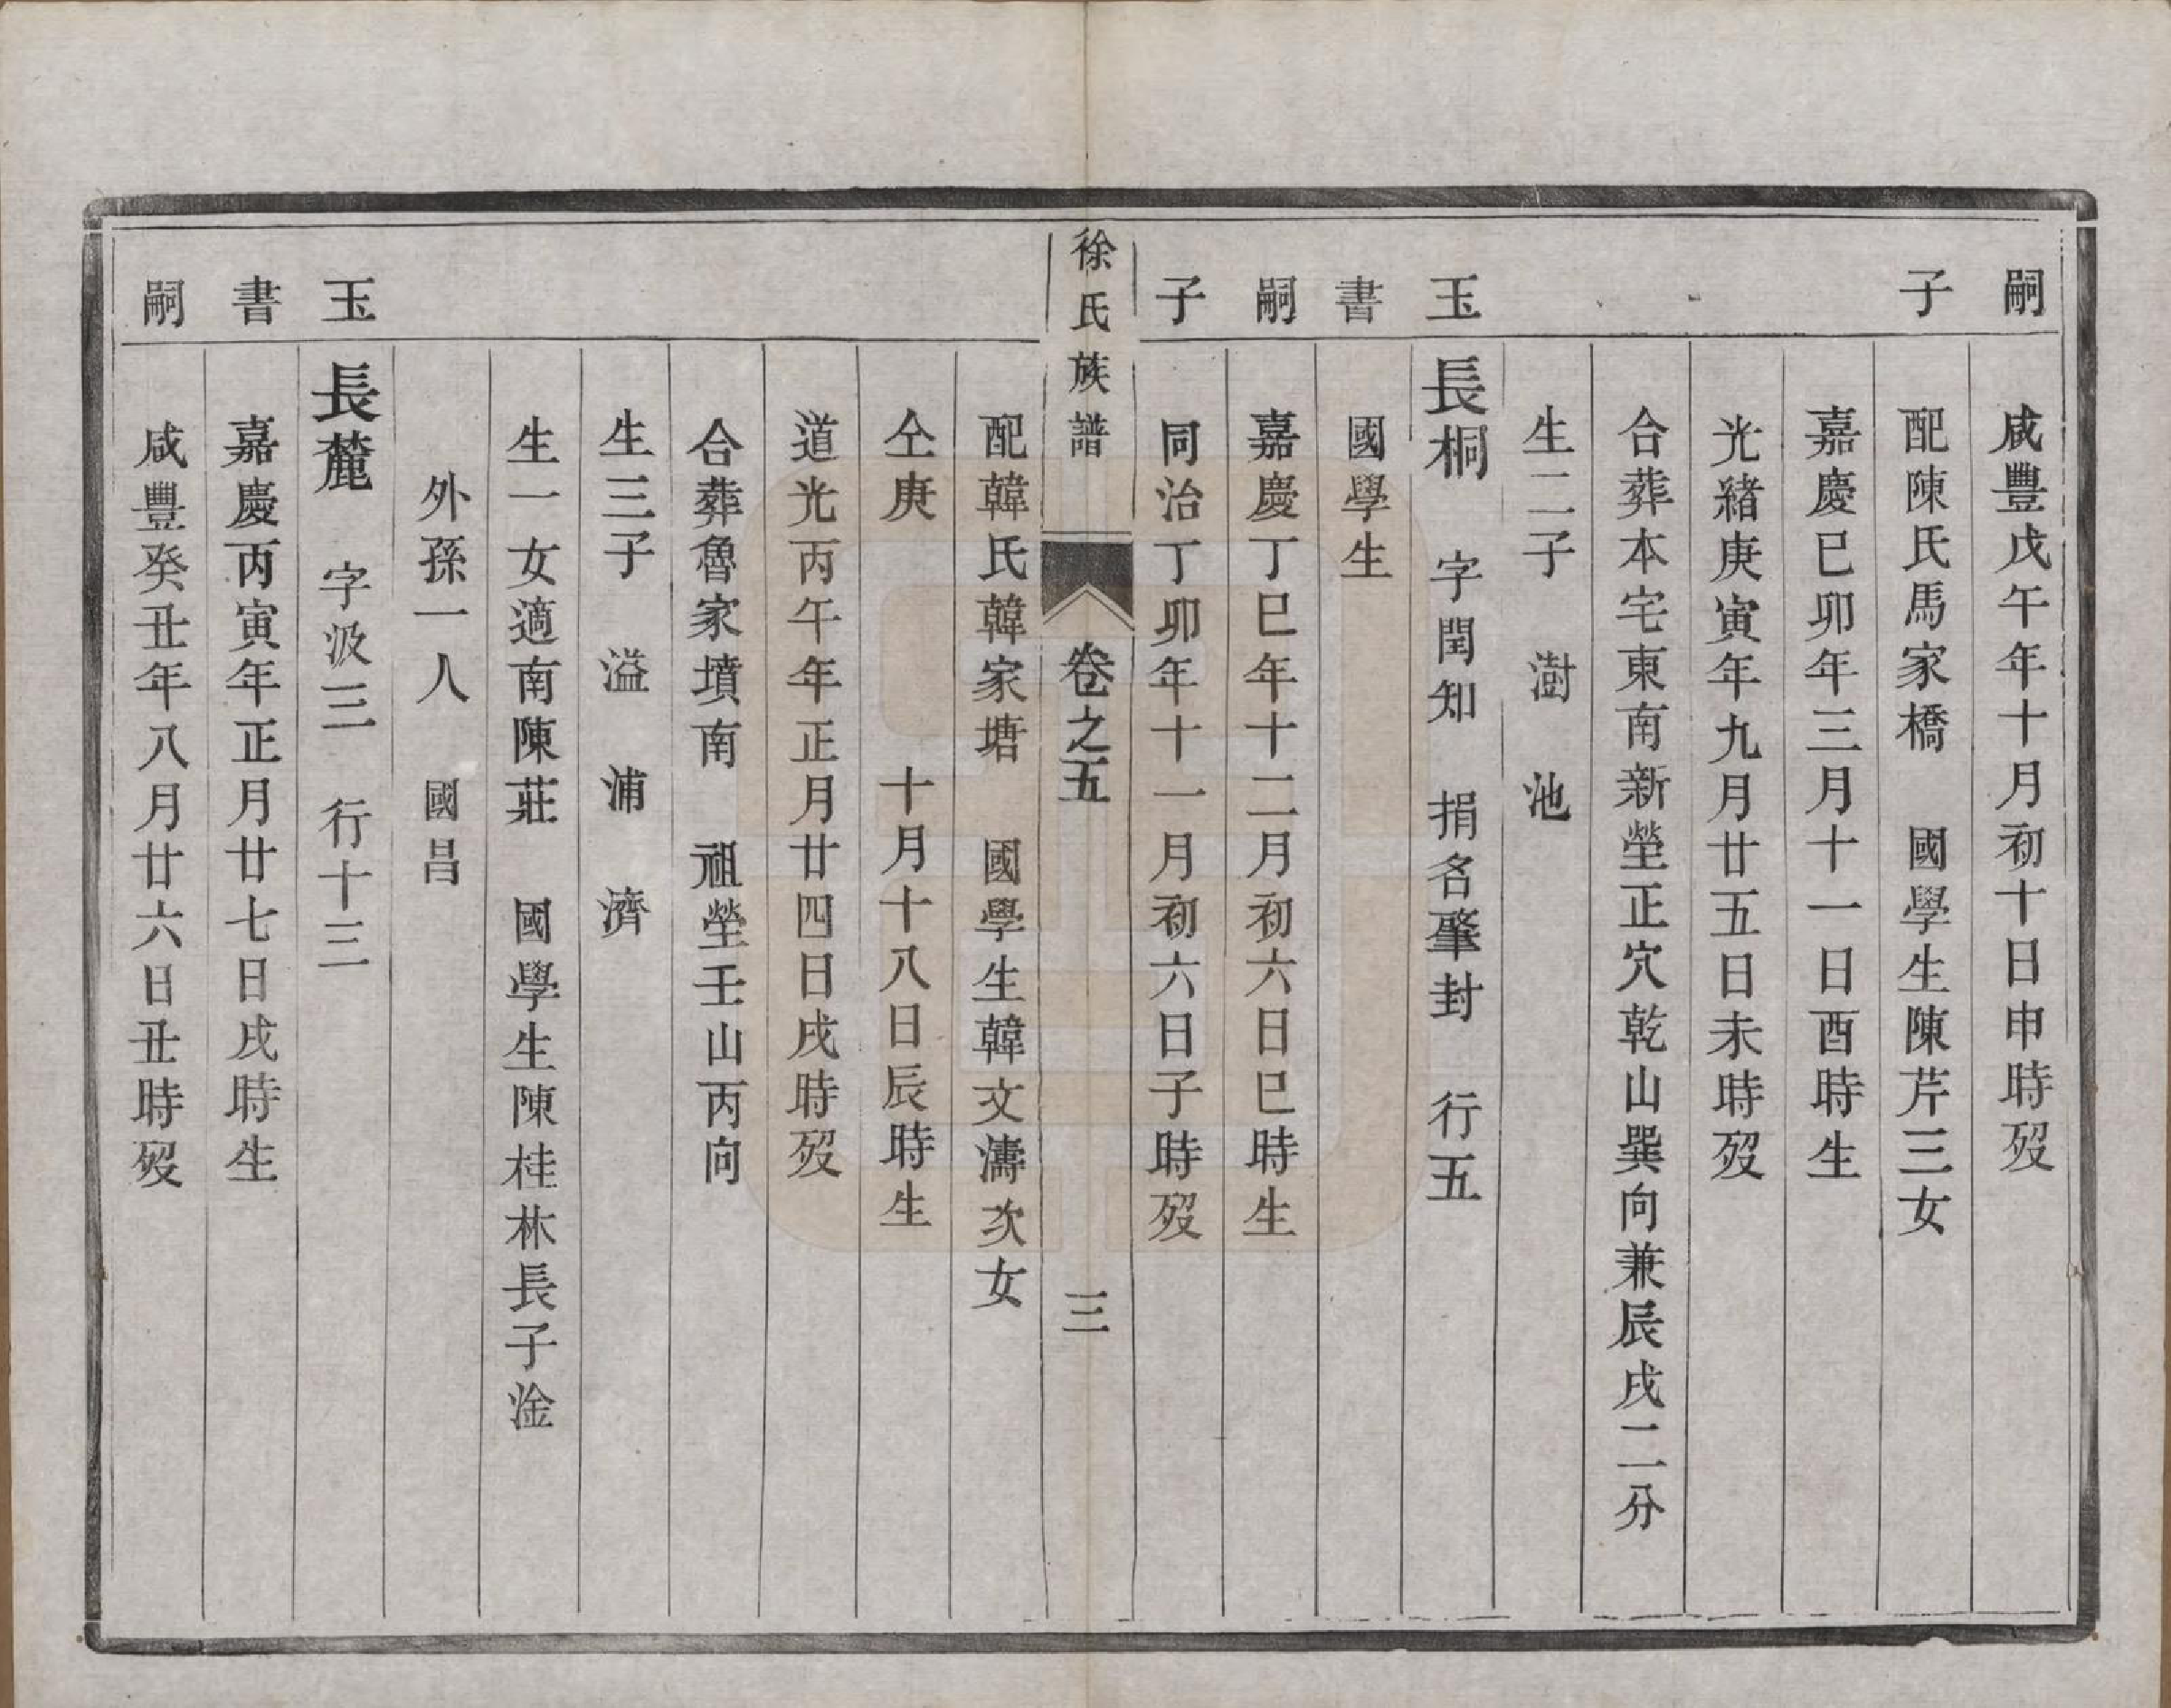 嗣 咸豐戊午年十月初十日申時歿
子 配陳氏馬家橋 國學生陳芹三女
嘉慶己卯年三月十一日酉時生
光緒庚寅年九月廿五日未時歿
合葬本宅東南新塋正穴乾山巽向兼辰戌二分
生二子 澍 池
玉 長桐 字閏知 捐名肇封 行五
書 國學生
嗣 嘉慶丁巳年十二月初六日巳時生
子 同治丁卯年十一月初六日子時歿
徐氏族譜 卷之五 三
配韓氏韓家塘 國學生韓文濤次女
仝庚 十月十八日辰時生
道光丙午年正月廿四日戌時歿
合葬魯家墳南 祖塋壬山丙向
生三子 溢 浦 濟
生一女適南陳莊 國學生陳桂林長子淦
外孫一人 國昌
玉 長麓 字汲三 行十三
書 嘉慶丙寅年正月廿七日戌時生
嗣 咸豐癸丑年八月廿六日丑時歿